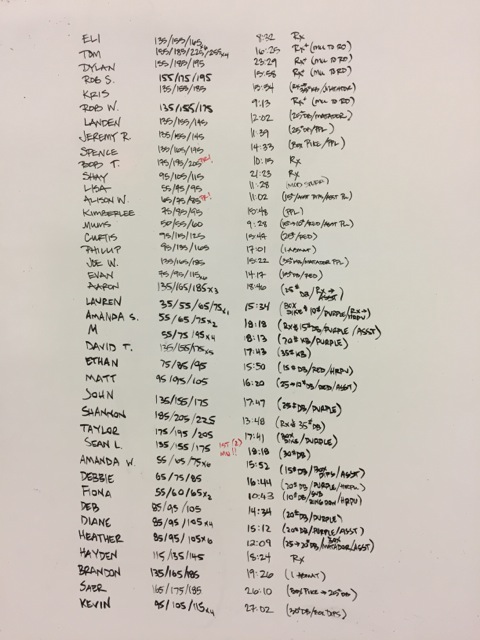 ELI 135/155/165x6 8:32 Rx
TOM 155/185/225/255x4 16:25 Rx+ (MU TO RO)
DYLAN 155/185/195 23:29 Rx+ (MU TO RO)
ROB S. 155/175/195 15:58 Rx+ (MU TO RO)
KRIS 135/155/185
ROB W. 135/155/175 9:13 Rx+ (MU TO RO)
LANDEN 135/155/145 12:02 (25# DB/MATADOR)
JEREMY R. 135/155/145 11:39 (25# DB/PPL)
SPENCE 135/165/195 14:33 (BOX PIKE/PPL)
BOB T. 175/195/205 PR! 10:15 Rx
SHAY 95/105/115 21:23 Rx
LISA 55/75/95 11:28
ALISON W. 65/75/85 PR! 11:02
KIMBERLEE 75/85/95 10:48 (PPL)
MUMS 50/55/60 9:28
CURTIS 95/115/125 (25#/RED)
PHILLIP 95/135/165 17:01
JOE W. 135/165/185 15:22 (35# KB/MATADOR PPL)
EVAN 75/95/115x6 14:17
AARON 135/165/185x3 18:46 (25# DB/Rx → ASST)
LAUREN 35/55/65/75x1 15:34 (BOX DIKE # 10#/PURPLE/Rx → HRPU)
AMANDA S. 55/65/75x2 18:18 (Rx # 15# DB/PURPLE/ASST)
M 55/75/95x4 18:13 (20# KB/PURPLE)
DAVID T. 135/155/175x5 17:43 (35# KB)
ETHAN 75/85/95 15:50 (15# DB/RED/HRPU)
MATT 95/95/105 16:20 (25→10# DB/RED/ASST)
JOHN 135/155/175 17:47 (25# DB/PURPLE)
SHANNON 185/205/225 13:48 (Rx # 35# DB)
TAYLOR 175/195/205 17:41 (BOX DIKE/PURPLE)
SEAN L. 135/155/175 1ST (2) MU!! 18:18 (30# DB)
AMANDA W. 55/65/75x6 15:52 (15# DB/BOX DIPS/ASST)
DEBBIE 65/75/85 16:44 (20# DB/PURPLE/HRPU)
FIONA 55/60/65x2 10:43
DEB 85/95/105 14:34 (20# DB/PURPLE)
DIANE 85/95/105x4 15:12 (20# DB/PURPLE/ASST)
HEATHER 85/95/105x6 12:09 (25→20# DB/BOX MATADOR/ASST)
HAYDEN 115/135/145 15:24 Rx
BRANDON 135/165/185 19:26
SABR 165/175/185 26:10 (BOX PIKE → 25# DB)
KEVIN 95/105/115x4 27:02